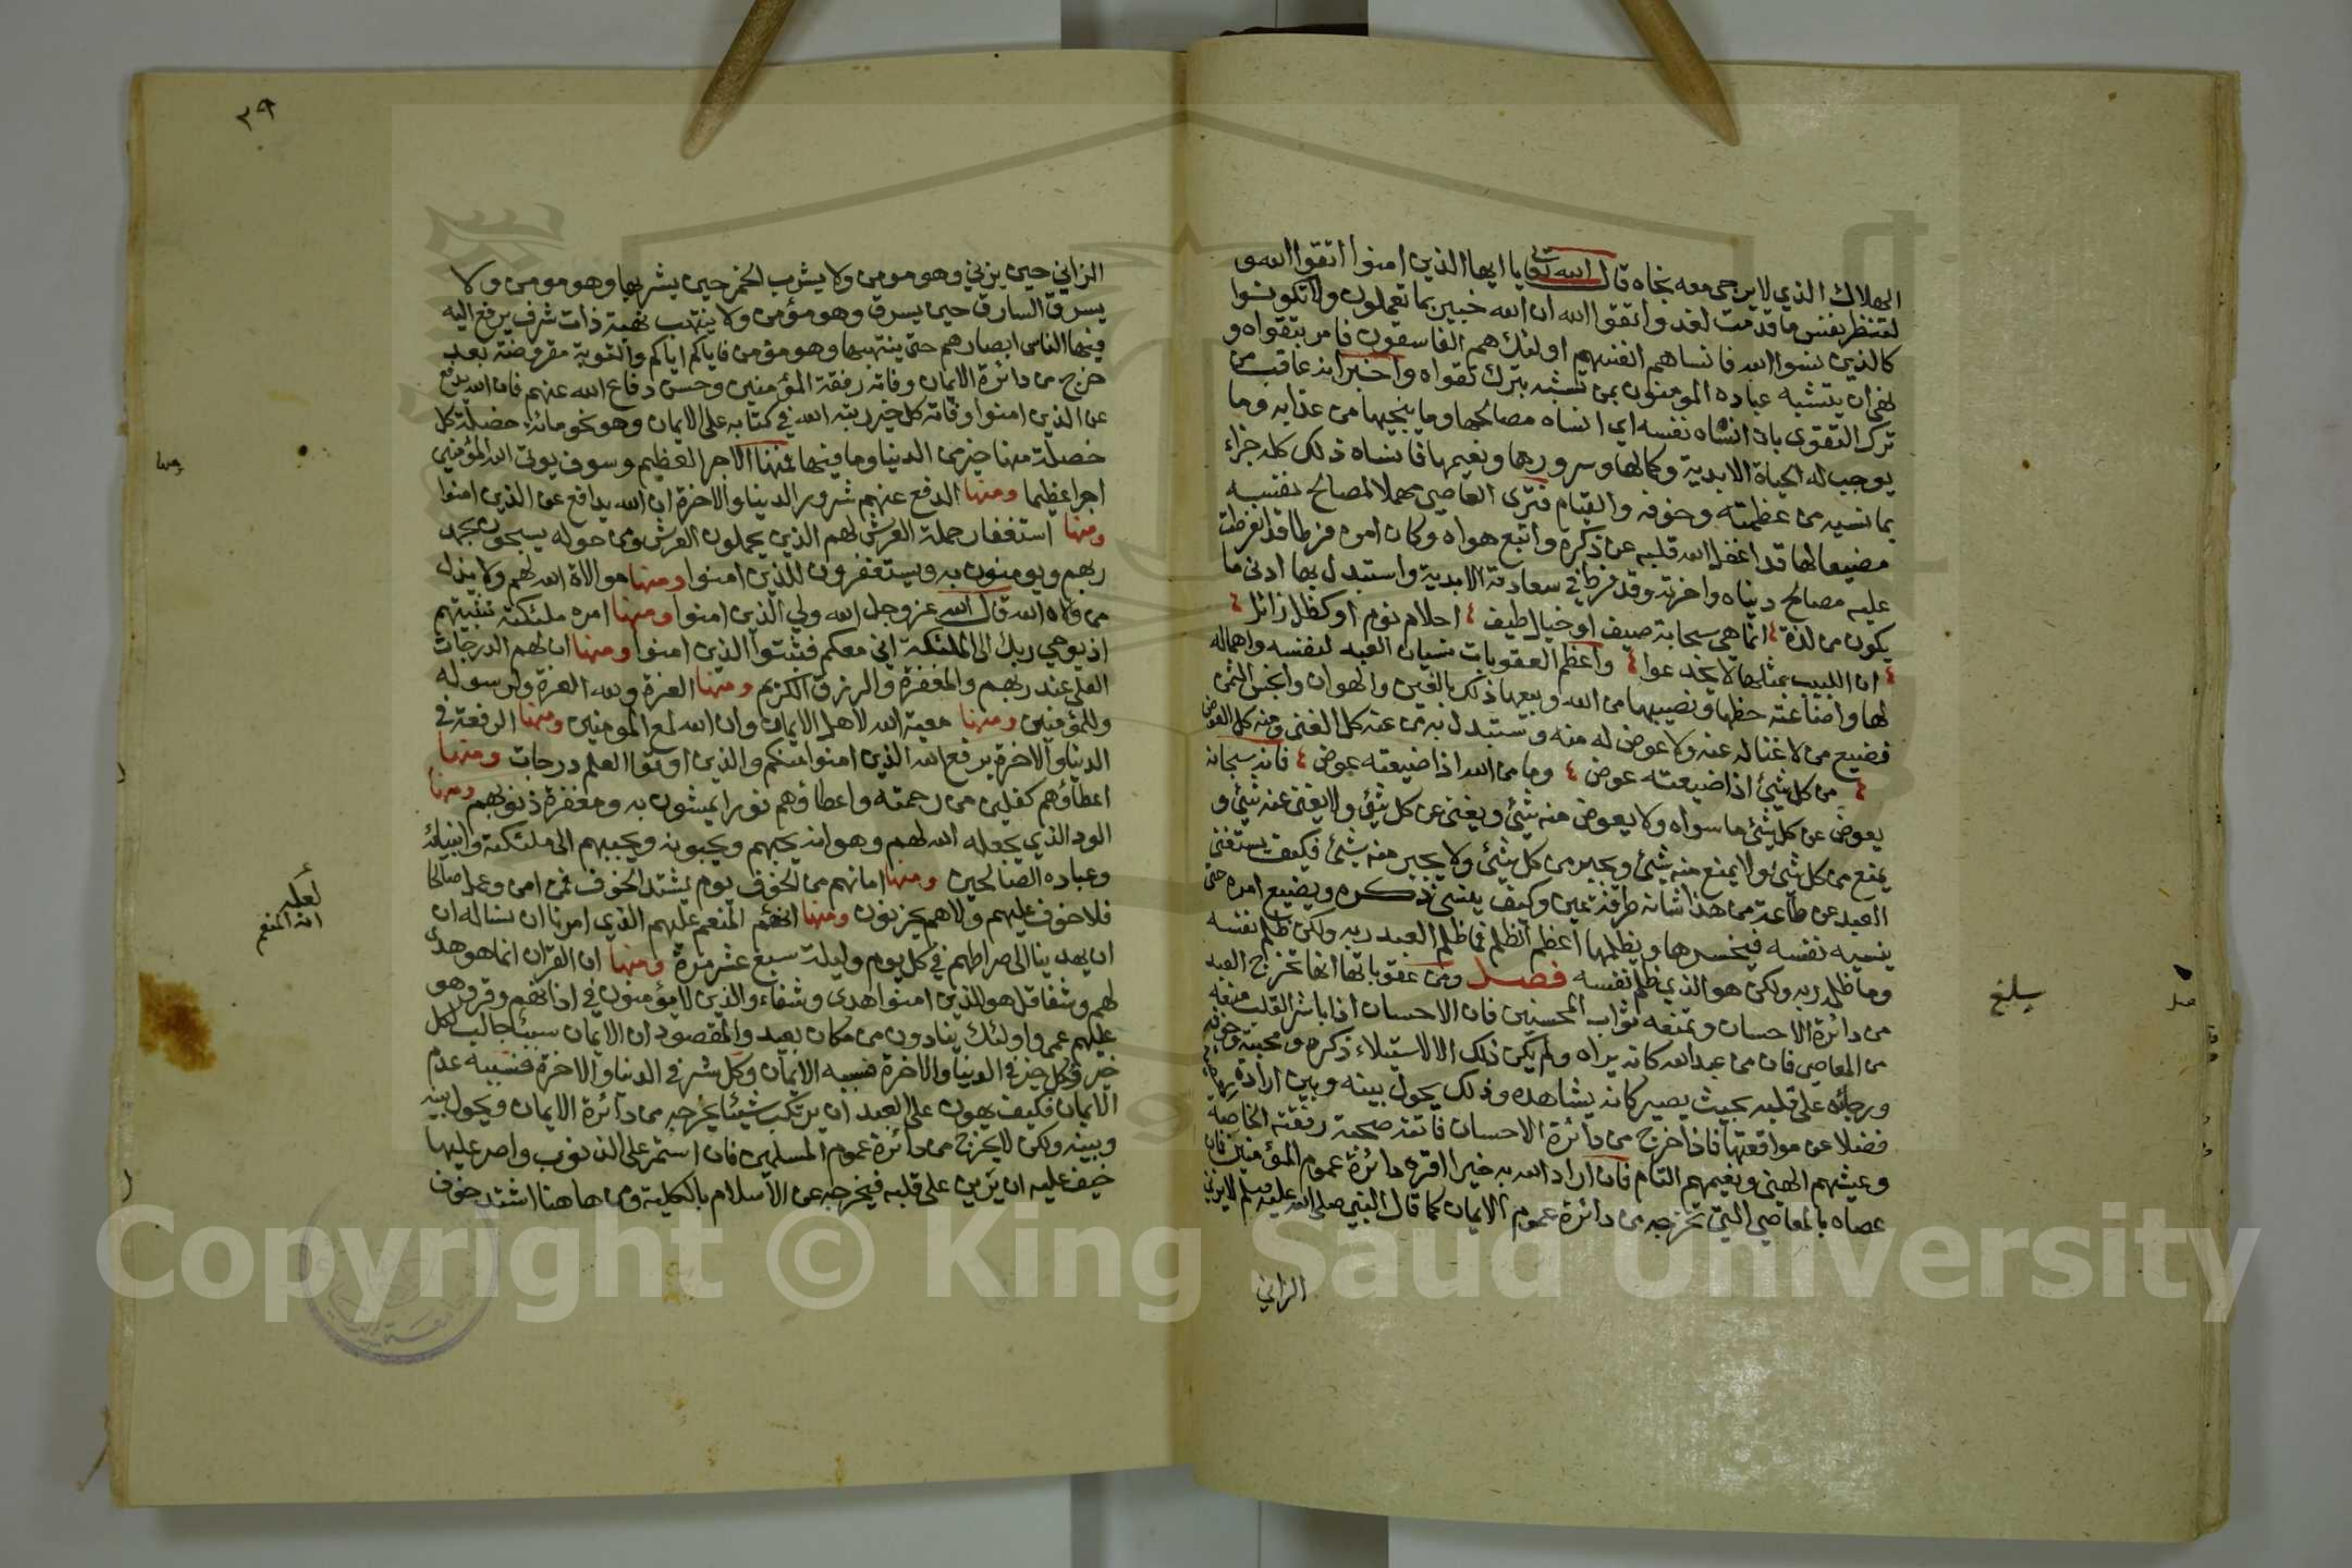 الهلاك الذي لا يرجى معه نجاة قال الله تعا يا ايها الذين امنوا اتقوا الله و
لتنظر نفس ما قدمت لغد واتقوا الله ان الله خبير بما تعملون ولا تكونوا
كالذين نسوا الله فانساهم انفسهم اولئك هم الفاسقون فامر بتقواه و
نهى ان يتشبه عباده المومنون بمن نسيه بترك تقواه واخبر انه عاقب من
ترك التقوى بان انساه نفسه اي انساه مصالحها وما ينجيها من عذابه وما
يوجب له الحياة الابدية وكمالها وسرورها ونعيمها فانساه ذلك كله جزاء
بما نسيه من عظمته وخوفه والقيام فترى العاصي مهملا لمصالح نفسه
مضيعا لها قد اغفل الله قلبه عن ذكره واتبع هواه وكان امره فرطا قد انفرطت
عليه مصالح دنياه واخرته وقد فرط في سعادته الابدية واستبدل بها ادنى ما
يكون من لذة انما هي سحابة صيف او خيال طيف احلام نوم او كظل زائل
ان اللبيب بمثلها لا يخدعوا واعظم العقوبات نسيان العبد لنفسه واهماله
لها واضاعته حظها ونصيبها من الله وبيعها ذلك بالغبن والهوان وابخس الثمن
فضيع من لا غنا له عنه ولا عوض له منه واستبدل به من عنه كل الغنى ومنه كل العوض
من كل شئ اذا ضيعته عوض وما من الله اذا ضيعته عوض فانه سبحانه
يعوض عن كل شئ ما سواه ولا يعوض منه شئ ويغني عن كل شئ ولا يغني عنه شئ و
يمنع من كل شئ ولا يمنع منه شئ ويجير من كل شئ ولا يجير منه شئ فكيف يستغني
العبد عن طاعة من هذا شانه طرفة عين وكيف ينسى ذكره ويضيع امره حتى
ينسيه نفسه فيخسرها ويظلمها اعظم الظلم فما ظلم العبد ربه ولكن ظلم نفسه
وما ظلم ربه ولكن هو الذي ظلم نفسه فصل ومن عقوباتها انها تخرج العبد
من دائرة الاحسان وتمنعه ثواب المحسنين فان الاحسان اذا باشر القلب منعه
من المعاصي فان من عبد الله كانه يراه ولم يكن ذلك الا لاستيلاء ذكره ومحبته وخوفه
ورجائه على قلبه بحيث يصير كانه يشاهده وذلك يحول بينه وبين ارادة
فضلا عن مواقعتها فاذا خرج من دائرة الاحسان فاتته صحبة رفقته الخاصة
وعيشهم الهني ونعيمهم التام فان اراد الله به خيرا اقره دائرة عموم المؤمنين فان
عصاه بالمعاصي التي تخرجه من دائرة عموم الايمان كما قال النبي صلى الله عليه وسلم لا يزني
الزاني
الزاني حين يزني وهو مومن ولا يشرب الخمر حين يشربها وهو مومن ولا
يسرق السارق حين يسرق وهو مؤمن ولا ينتهب نهبة ذات شرف يرفع اليه
فيها الناس ابصارهم حتى ينتهبها وهو مؤمن فاياكم اياكم والتوبة مفروضة بعد
خرج من دائرة الايمان وفاته رفقة المؤمنين وحسن دفاع الله عنهم فان الله يدفع
عن الذين امنوا وفاته كل خير رتبه الله في كتابه على الايمان وهو نحو مائة خصلة كل
خصلة منها خير من الدنيا وما فيها فمنها الاجر العظيم وسوف يؤتي الله المؤمنين
اجرا عظيما ومنها الدفع عنهم شرور الدنيا والاخرة ان الله يدافع عن الذين امنوا
ومنها استغفار حملة العرش لهم الذين يحملون العرش ومن حوله يسبحون بحمد
ربهم ويومنون به ويستغفرون للذين امنوا ومنها موالاة الله لهم ولا يذل
من والاه الله قال الله عز وجل الله ولي الذين امنوا ومنها امره ملئكته تثبيتهم
اذ يوحي ربك الى الملئكة اني معكم فثبتوا الذين امنوا ومنها ان لهم الدرجات
العلى عند ربهم والمغفرة والرزق الكريم ومنها العزة ولله العزة ولرسوله
وللمؤمنين ومنها معية الله لاهل الايمان وان الله لمع المؤمنين ومنها الرفعة في
الدنيا والاخرة يرفع الله الذين امنوا منكم والذين اوتوا العلم درجات ومنها
اعطاؤهم كفلين من رحمته واعطاؤهم نورا يمشون به ومغفرة ذنوبهم ومنها
الود الذي يجعله الله لهم وهو انه يحبهم ويحبونه ويحببهم الى ملئكته وانبيائه
وعباده الصالحين ومنها امانهم من الخوف يوم يشتد الخوف فمن امن وعمل صالحا
فلا خوف عليهم ولا هم يحزنون ومنها انهم المنعم عليهم الذي امرنا ان نساله ان
ان يهدينا الى صراطهم في كل يوم وليلة سبع عشر مرة ومنها ان القران انما هو هدى
لهم وشفا قل هو للذين امنوا هدى وشفاء والذين لا يؤمنون في اذانهم وقر وهو
عليهم عمى واولئك ينادون من مكان بعيد والمقصود ان الايمان سبب جالب لكل
خير وكل خير في الدنيا والاخرة فسببه الايمان وكل شر في الدنيا والاخرة فسببه عدم
الايمان فكيف يهون على العبد ان يرتكب شيئا يخرجه من دائرة الايمان ويحول بينه
وبينه ولكن لا يخرج من دائرة عموم المسلمين فان استمر على الذنوب واصر عليها
خيف عليه ان يرين على قلبه فيخرجه عن الاسلام بالكلية ومن هاهنا اشتد خوف
٣٩
لعله
انه المنعم
Copyright © King Saud University